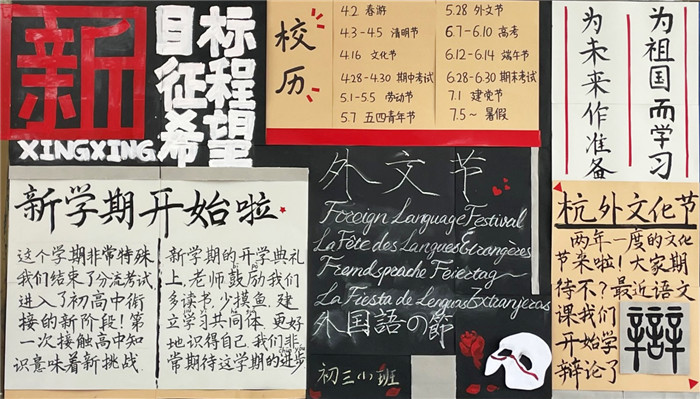 新
目标
征程
希望
XINGXING
校历
4.2 春游
4.3-4.5 清明节
4.16 文化节
4.28-4.30 期中考试
5.1-5.5 劳动节
5.7 五四青年节
5.28 外文节
6.7-6.10 高考
6.12-6.14 端午节
6.28-6.30 期末考试
7.1 建党节
7.5~ 暑假
为祖国而学习
为未来作准备
新学期开始啦
这个学期非常特殊
我们结束了分流考试,
进入了初高中衔
接的新阶段!第
一次接触高中知
识意味着新挑战
新学期的开学典礼
上,老师鼓励我们
多读书,少摸鱼,建
立学习共同体,更好
地识得自己.我们非
常期待这学期的进步
外文节
Foreign Language Festival
La Fête des Langues Étrangères
Fremdsprache Feiertag
La Fiesta de Lenguas Extranjeras
外国語の節
初三小班
杭外文化节
两年一度的文化
节来啦!大家期
待不?最近语文
课我们
开始学
辩论了
辯